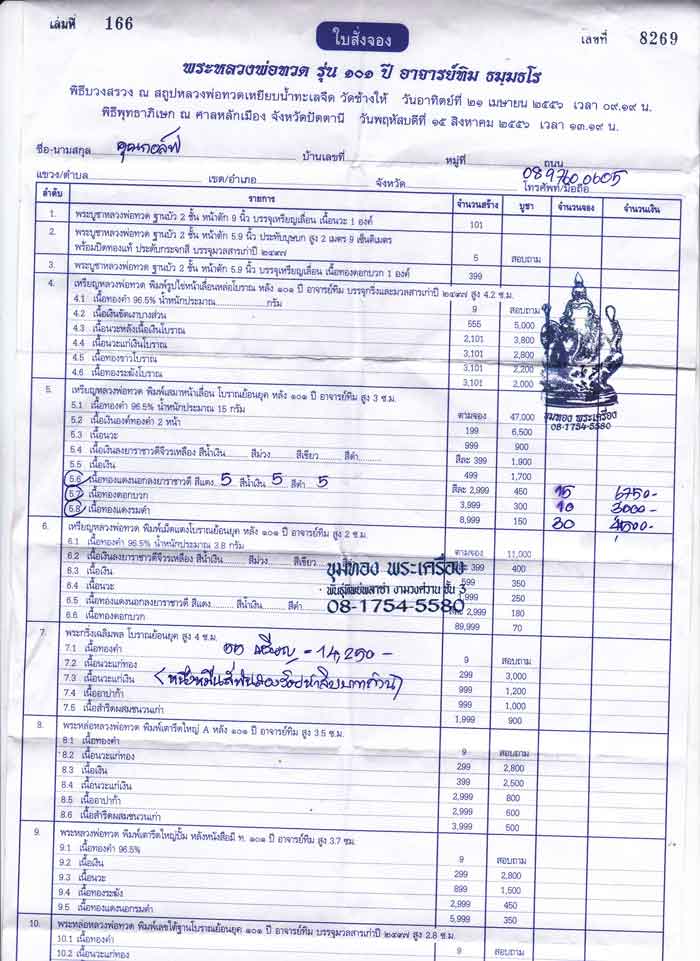 เล่มที่ 166
ใบสั่งจอง
เลขที่ 8269
พระหลวงพ่อทวด รุ่น ๑๐๑ ปี อาจารย์ทิม ธมฺมธโร
พิธีบวงสรวง ณ สถูปหลวงพ่อทวดเหยียบน้ำทะเลจืด วัดช้างให้ วันอาทิตย์ที่ ๒๑ เมษายน ๒๕๕๖ เวลา ๐๙.๑๙ น.
พิธีพุทธาภิเษก ณ ศาลหลักเมือง จังหวัดปัตตานี วันพฤหัสบดีที่ ๑๕ สิงหาคม ๒๕๕๖ เวลา ๑๓.๑๙ น.
ชื่อ-นามสกุล คุณกอล์ฟ บ้านเลขที่ หมู่ที่ ถนน
แขวง/ตำบล เขต/อำเภอ จังหวัด โทรศัพท์/มือถือ 089 760 0605
ลำดับ รายการ จำนวนสร้าง บูชา จำนวนจอง จำนวนเงิน
1. พระบูชาหลวงพ่อทวด ฐานบัว 2 ชั้น หน้าตัก 9 นิ้ว บรรจุเหรียญเลื่อน เนื้อนวะ 1 องค์ 101
2. พระบูชาหลวงพ่อทวด ฐานบัว 2 ชั้น หน้าตัก 5.9 นิ้ว ประทับบุษบก สูง 2 เมตร 9 เซ็นติเมตร
พร้อมปิดทองแท้ ประดับกระจกสี บรรจุมวลสารเก่าปี ๒๔๙๗ 5 สอบถาม
3. พระบูชาหลวงพ่อทวด ฐานบัว 2 ชั้น หน้าตัก 5.9 นิ้ว บรรจุเหรียญเลื่อน เนื้อทองดอกบวก 1 องค์ 399
4. เหรียญหลวงพ่อทวด พิมพ์รูปไข่หน้าเลื่อนหล่อโบราณ หลัง ๑๐๑ ปี อาจารย์ทิม บรรจุกริ่งและมวลสารเก่าปี ๒๔๙๗ สูง 4.2 ซ.ม.
4.1 เนื้อทองคำ 96.5% น้ำหนักประมาณ....................กรัม 9 สอบถาม
4.2 เนื้อเงินขัดเงาบางส่วน 555 5,000
4.3 เนื้อนวะหลังเนื้อเงินโบราณ 2,101 3,800
4.4 เนื้อนวะแก่เงินโบราณ 3,101 2,800
4.5 เนื้อทองขาวโบราณ 3,101 2,200
4.6 เนื้อทองระฆังโบราณ 3,101 2,000
ขุมทอง พระเครื่อง
08-1754-5580
5. เหรียญหลวงพ่อทวด พิมพ์เสมาหน้าเลื่อน โบราณย้อนยุค หลัง ๑๐๑ ปี อาจารย์ทิม สูง 3 ซ.ม.
5.1 เนื้อทองคำ 96.5% น้ำหนักประมาณ 15 กรัม ตามจอง 47,000
5.2 เนื้อเงินองค์ทองคำ 2 หน้า 199 6,500
5.3 เนื้อนวะ 999 900
5.4 เนื้อเงินลงยาราชาวดีจีวรเหลือง สีน้ำเงิน............สีม่วง............สีเขียว............สีดำ............ สีละ 399 1,900
5.5 เนื้อเงิน 499 1,700
5.6 เนื้อทองแดงนอกลงยาราชาวดี สีแดง 5 สีน้ำเงิน 5 สีดำ 5 สีละ 2,999 450 15 6750-
5.7 เนื้อทองดอกบวก 3,999 300 10 3000-
5.8 เนื้อทองแดงรมดำ 8,999 150 30 4500-
6. เหรียญหลวงพ่อทวด พิมพ์เม็ดแตงโบราณย้อนยุค หลัง ๑๐๑ ปี อาจารย์ทิม สูง 2 ซ.ม.
6.1 เนื้อทองคำ 96.5% น้ำหนักประมาณ 3.8 กรัม ตามจอง 11,000
6.2 เนื้อเงินลงยาราชาวดีจีวรเหลือง สีน้ำเงิน............สีม่วง............สีเขียว 399 400
6.3 เนื้อเงิน 350
6.4 เนื้อนวะ 250
6.5 เนื้อทองแดงนอกลงยาราชาวดี สีแดง............สีน้ำเงิน............สีดำ 2,999 180
6.6 เนื้อทองดอกบวก 89,999 70
ขุมทอง พระเครื่อง
พันธุ์ทิพย์พลาซ่า งามวงศ์วาน ชั้น 3
08-1754-5580
7. พระกริ่งเฉลิมพล โบราณย้อนยุค สูง 4 ซ.ม.
7.1 เนื้อทองคำ 9 สอบถาม
7.2 เนื้อนวะแก่ทอง 299 3,000
7.3 เนื้อนวะแก่เงิน 999 1,200
7.4 เนื้ออาปาก้า 999 1,000
7.5 เนื้อสำริดผสมชนวนเก่า 1,999 900
เหรียญ = 14,250-
(หนึ่งหมื่นสี่พันสองร้อยห้าสิบบาทถ้วน)
8. พระหล่อหลวงพ่อทวด พิมพ์เตารีดใหญ่ A หลัง ๑๐๑ ปี อาจารย์ทิม สูง 3.5 ซ.ม.
8.1 เนื้อทองคำ 9 สอบถาม
8.2 เนื้อนวะแก่ทอง 299 2,800
8.3 เนื้อเงิน 399 2,500
8.4 เนื้อนวะแก่เงิน 2,999 800
8.5 เนื้ออาปาก้า 2,999 600
8.6 เนื้อสำริดผสมชนวนเก่า 3,999 500
9. พระหล่อหลวงพ่อทวด พิมพ์เตารีดใหญ่ปั๊ม หลังหนังสือมี ท. ๑๐๑ ปี อาจารย์ทิม สูง 3.7 ซม.
9.1 เนื้อทองคำ 96.5% 9 สอบถาม
9.2 เนื้อเงิน 299 2,800
9.3 เนื้อนวะ 899 1,500
9.4 เนื้อทองระฆัง 2,999 450
9.5 เนื้อทองแดงนอกรมดำ 5,999 350
10. พระหล่อหลวงพ่อทวด พิมพ์เลขใต้ฐานโบราณย้อนยุค ๑๐๑ ปี อาจารย์ทิม บรรจุมวลสารเก่าปี ๒๔๙๗ สูง 2.8 ซ.ม.
10.1 เนื้อทองคำ 9 สอบถาม
10.2 เนื้อนวะแก่ทอง